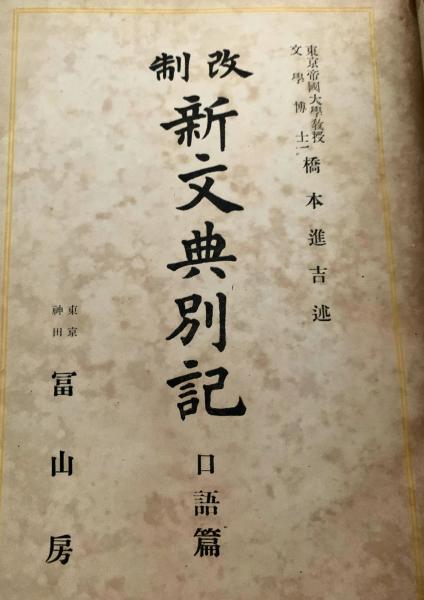 東京帝國大學教授
文學博士
橋本進吉述
改制
新文典別記
口語篇
東京
神田
冨山房